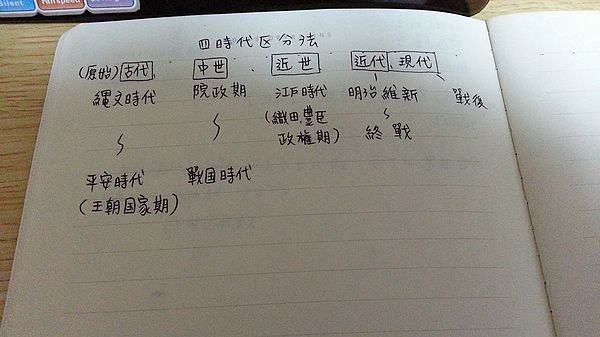 Silent
Fan Speed
四時代区分法
(原始) 古代. 中世. 近世 近代. 現代
縄文時代 院政期 江戸時代 明治維新 戦後
〜 〜 (織田,豊臣 〜
政権期) 終戦
平安時代 戦国時代
(王朝国家期)